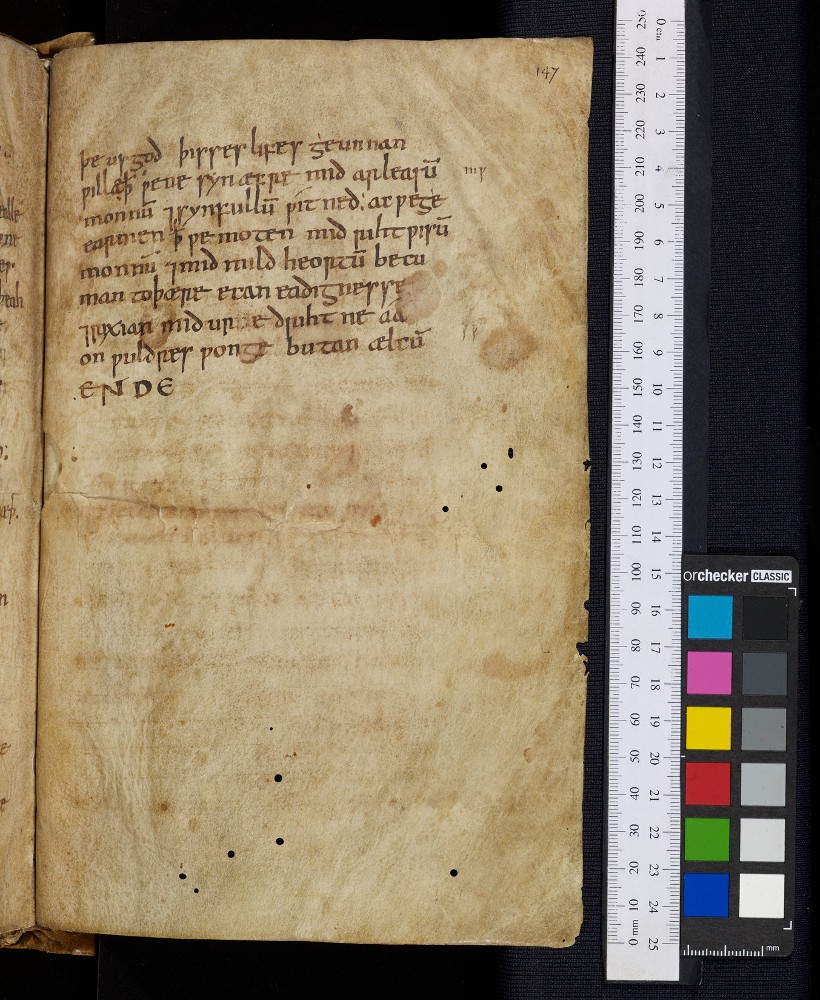 147
þe us god þisses lifes geunnan
ƿille ꝥ ƿe ne syn æfre mid arleasū
monnū ⁊ synfullū ƿitned. ac ƿe ge
earnien ꝥ ƿe moten mid rihtƿisū
monnū ⁊ mid mild heortū becu
man to þære ecan eadignesse
⁊ rixian mid drihtne aa
on ƿuldres ƿonge butan ælcū
ENDE
0 cm 1 2 3 4 5 6 7 8 9 10 11 12 13 14 15 16 17 18 19 20 21 22 23 24 25
250 240 230 220 210 200 190 180 170 160 150 140 130 120 110 100 90 80 70 60 50 40 30 20 10 0 mm
orchecker CLASSIC
mm